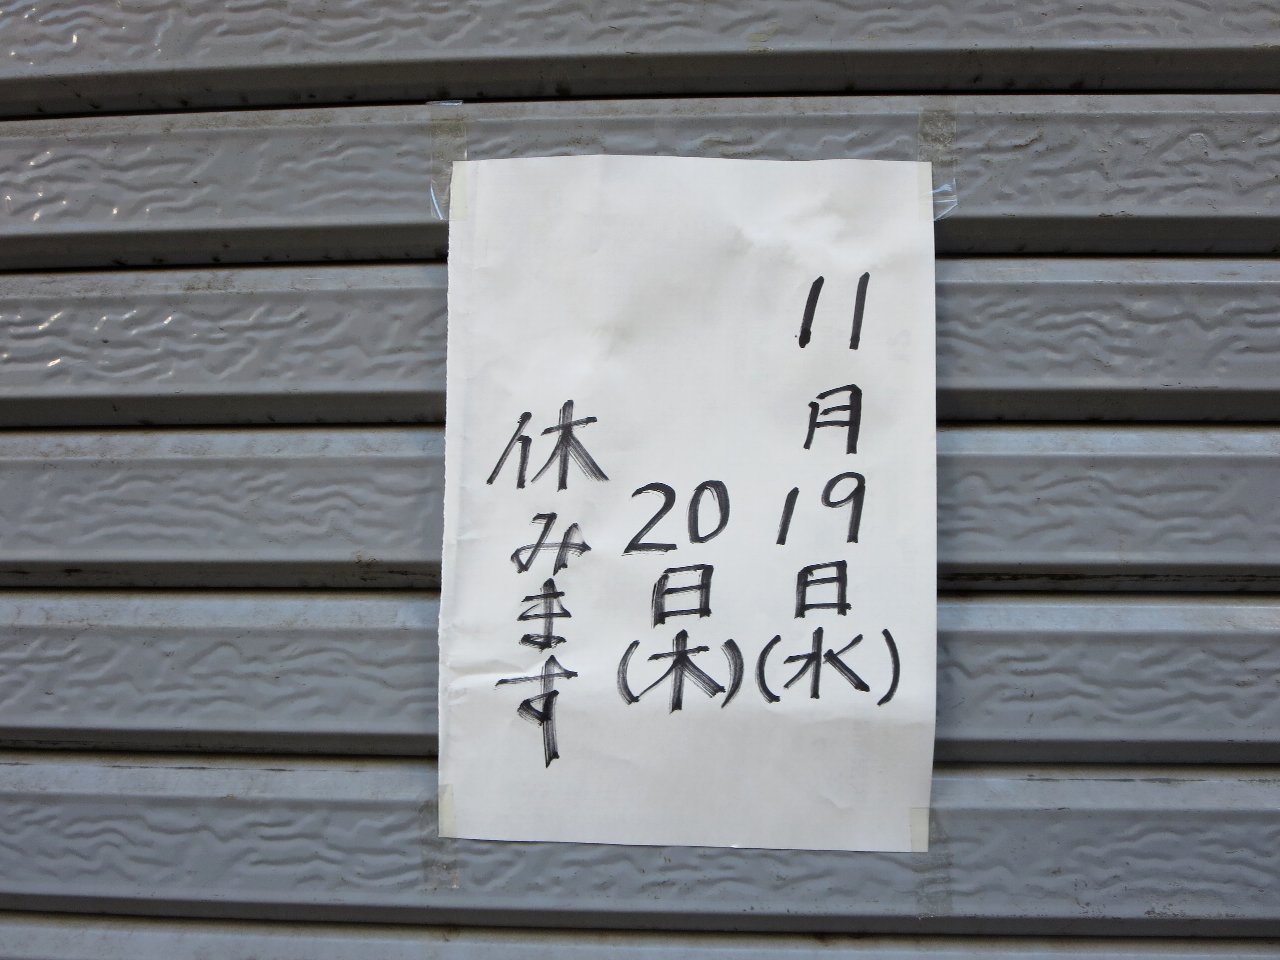 11月19日(水)
20日(木)
休みます